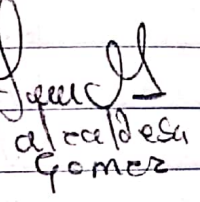 alcaldesa
Gomez